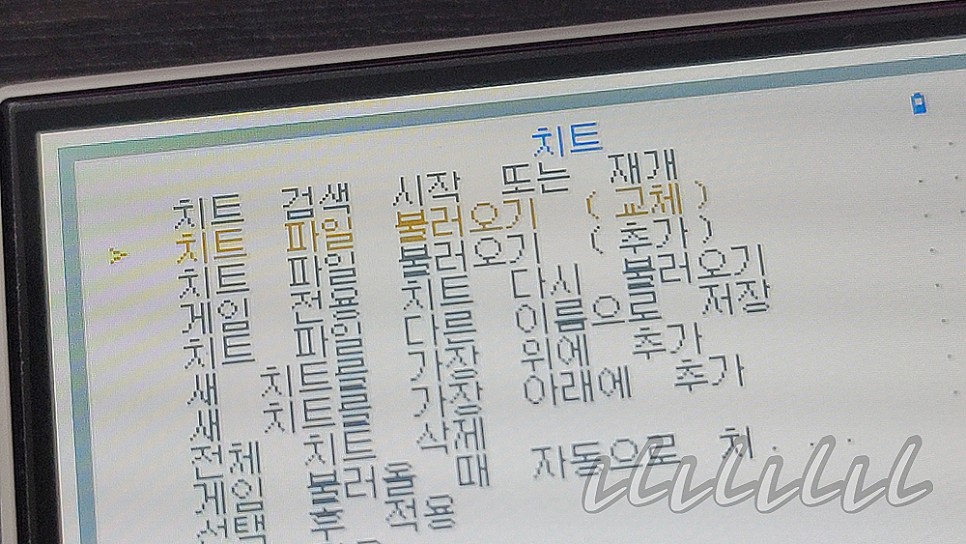 치트
치트 검색 시작 또는 재개
치트 파일 불러오기 (교체)
치트 파일 불러오기 (추가)
게임 전용 치트 다시 불러오기
치트 파일 다른 이름으로 저장
새 치트를 가장 위에 추가
새 치트를 가장 아래에 추가
전체 치트 삭제
게임 불러올 때 자동으로 치...
선택 후 적용